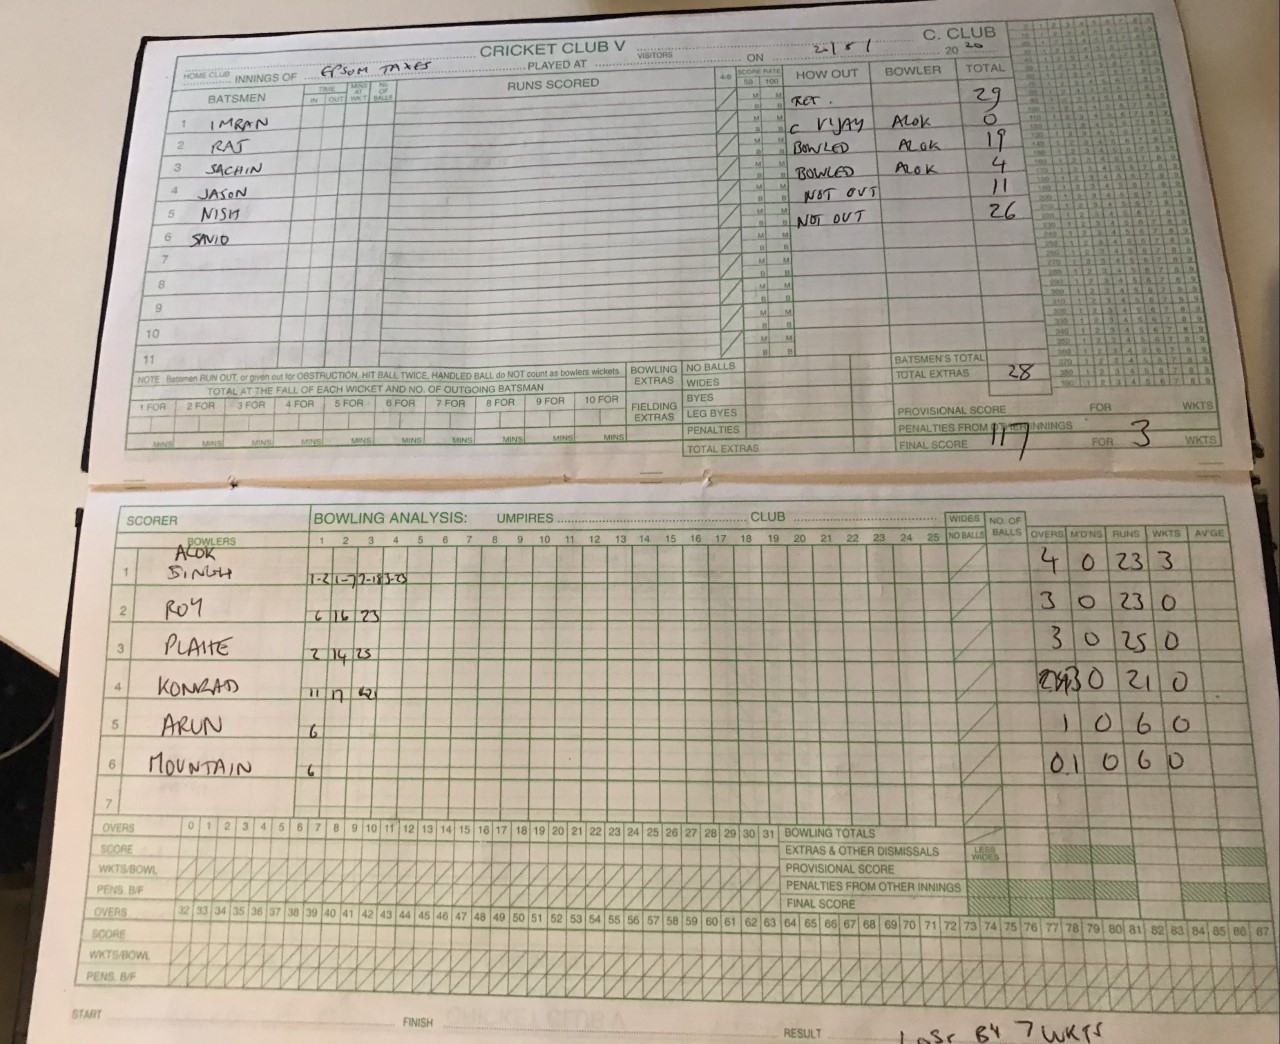 CRICKET CLUB V C. CLUB
HOME CLUB VISITORS
INNINGS OF EPSOM TAXES PLAYED AT ON 20/8/ 20 20
BATSMEN TIME IN OUT MINS AT WKT NO. OF BALLS RUNS SCORED 4/6 SCORE RATE 50 100 HOW OUT BOWLER TOTAL
1 IMRAN RET. 29
2 RAJ C VIJAY ALOK 0
3 SACHIN BOWLED ALOK 19
4 JASON BOWLED ALOK 4
5 NISH NOT OUT 11
6 SAVIO NOT OUT 26
7
8
9
10
11
NOTE: Batsmen RUN OUT, or given out for OBSTRUCTION, HIT BALL TWICE, HANDLED BALL do NOT count as bowlers wickets.
TOTAL AT THE FALL OF EACH WICKET AND NO. OF OUTGOING BATSMAN
1 FOR 2 FOR 3 FOR 4 FOR 5 FOR 6 FOR 7 FOR 8 FOR 9 FOR 10 FOR
MINS MINS MINS MINS MINS MINS MINS MINS MINS
BOWLING EXTRAS NO BALLS
WIDES
FIELDING EXTRAS BYES
LEG BYES
PENALTIES
TOTAL EXTRAS
BATSMEN'S TOTAL
TOTAL EXTRAS 28
PROVISIONAL SCORE FOR WKTS
PENALTIES FROM OTHER INNINGS
FINAL SCORE 117 FOR 3 WKTS
SCORER BOWLING ANALYSIS: UMPIRES CLUB WIDES NO BALLS NO. OF BALLS OVERS M'DNS RUNS WKTS AV'GE
BOWLERS 1 2 3 4 5 6 7 8 9 10 11 12 13 14 15 16 17 18 19 20 21 22 23 24 25
1 ALOK SINGH 1-2 1-7 2-18 3-23 4 0 23 3
2 ROY 6 16 23 3 0 23 0
3 PLAHE 2 14 25 3 0 25 0
4 KONRAD 11 17 21 3 0 21 0
5 ARUN 6 1 0 6 0
6 MOUNTAIN 6 0.1 0 6 0
7
OVERS 0 1 2 3 4 5 6 7 8 9 10 11 12 13 14 15 16 17 18 19 20 21 22 23 24 25 26 27 28 29 30 31
SCORE
WKTS/BOWL
PENS. B/F
BOWLING TOTALS
EXTRAS & OTHER DISMISSALS LESS WIDES
PROVISIONAL SCORE
PENALTIES FROM OTHER INNINGS
FINAL SCORE
OVERS 32 33 34 35 36 37 38 39 40 41 42 43 44 45 46 47 48 49 50 51 52 53 54 55 56 57 58 59 60 61 62 63 64 65 66 67 68 69 70 71 72 73 74 75 76 77 78 79 80 81 82 83 84 85 86 87
SCORE
WKTS/BOWL
PENS. B/F
START FINISH RESULT LOST BY 7 WKTS